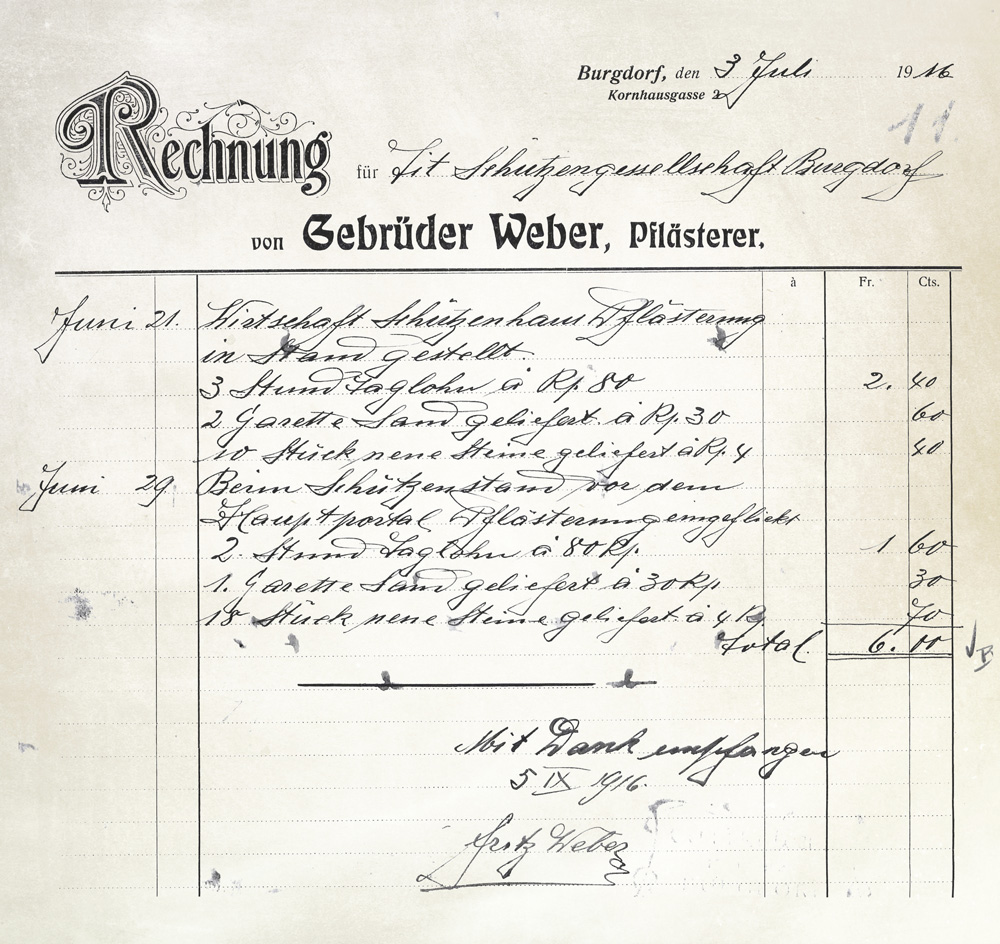 Burgdorf, den 3 Juli 1916
Kornhausgasse 2
11.
Rechnung für Tit Schützengessellschaft Burgdorf
von Gebrüder Weber, Pflästerer.
à Fr. Cts.
Juni 21. Wirtschaft Schützenhaus Pflästerung
in Stand gestellt.
3 Stund Taglohn à Rp. 80 2. 40
2 Garette Sand geliefert à Rp. 30 60
10 Stück neue Steine geliefert à Rp. 4 40
Juni 29. Beim Schützenstand vor dem
Hauptportal Pflästerung eingeflickt
2. Stund Taglohn à 80 Rp. 1 60
1. Garette Sand geliefert à 30 Rp 30
18 Stück neue Steine geliefert à 4 Rp. 70
Total 6.00
Mit Dank empfangen
5 IX 1916.
Fritz Weber